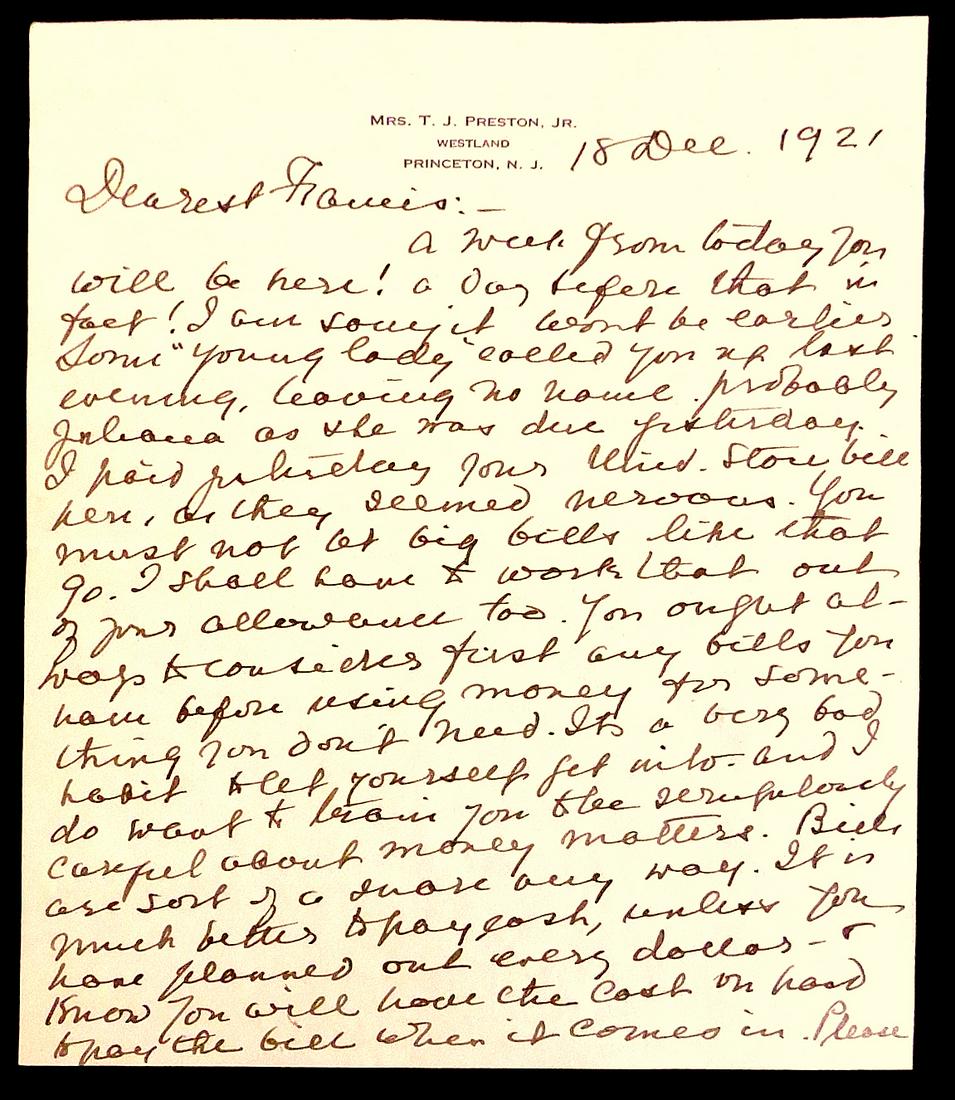 MRS. T. J. PRESTON, JR.
WESTLAND
PRINCETON, N. J.
18 Dec. 1921
Dearest Francis:—
A week from today you
will be here! a day before that in
fact! I am sorry it won't be earlier.
Some "young lady" called you up last
evening, leaving no name. probably
Juliana as she was due yesterday.
I paid yesterday your Univ. Store bill
here, as they seemed nervous. You
must not let big bills like that
go. I shall have to work that out
of your allowance too. You ought al-
ways to consider first any bills you
have before using money for some-
thing you don't need. Its a very bad
habit to let yourself get into- and I
do want to train you to be scrupulously
careful about money matters. Bills
are sort of a snare any way. It is
much better to pay cash, unless you
have planned out every dollar- &
Know you will have the cash on hand
to pay the bill when it comes in. Please